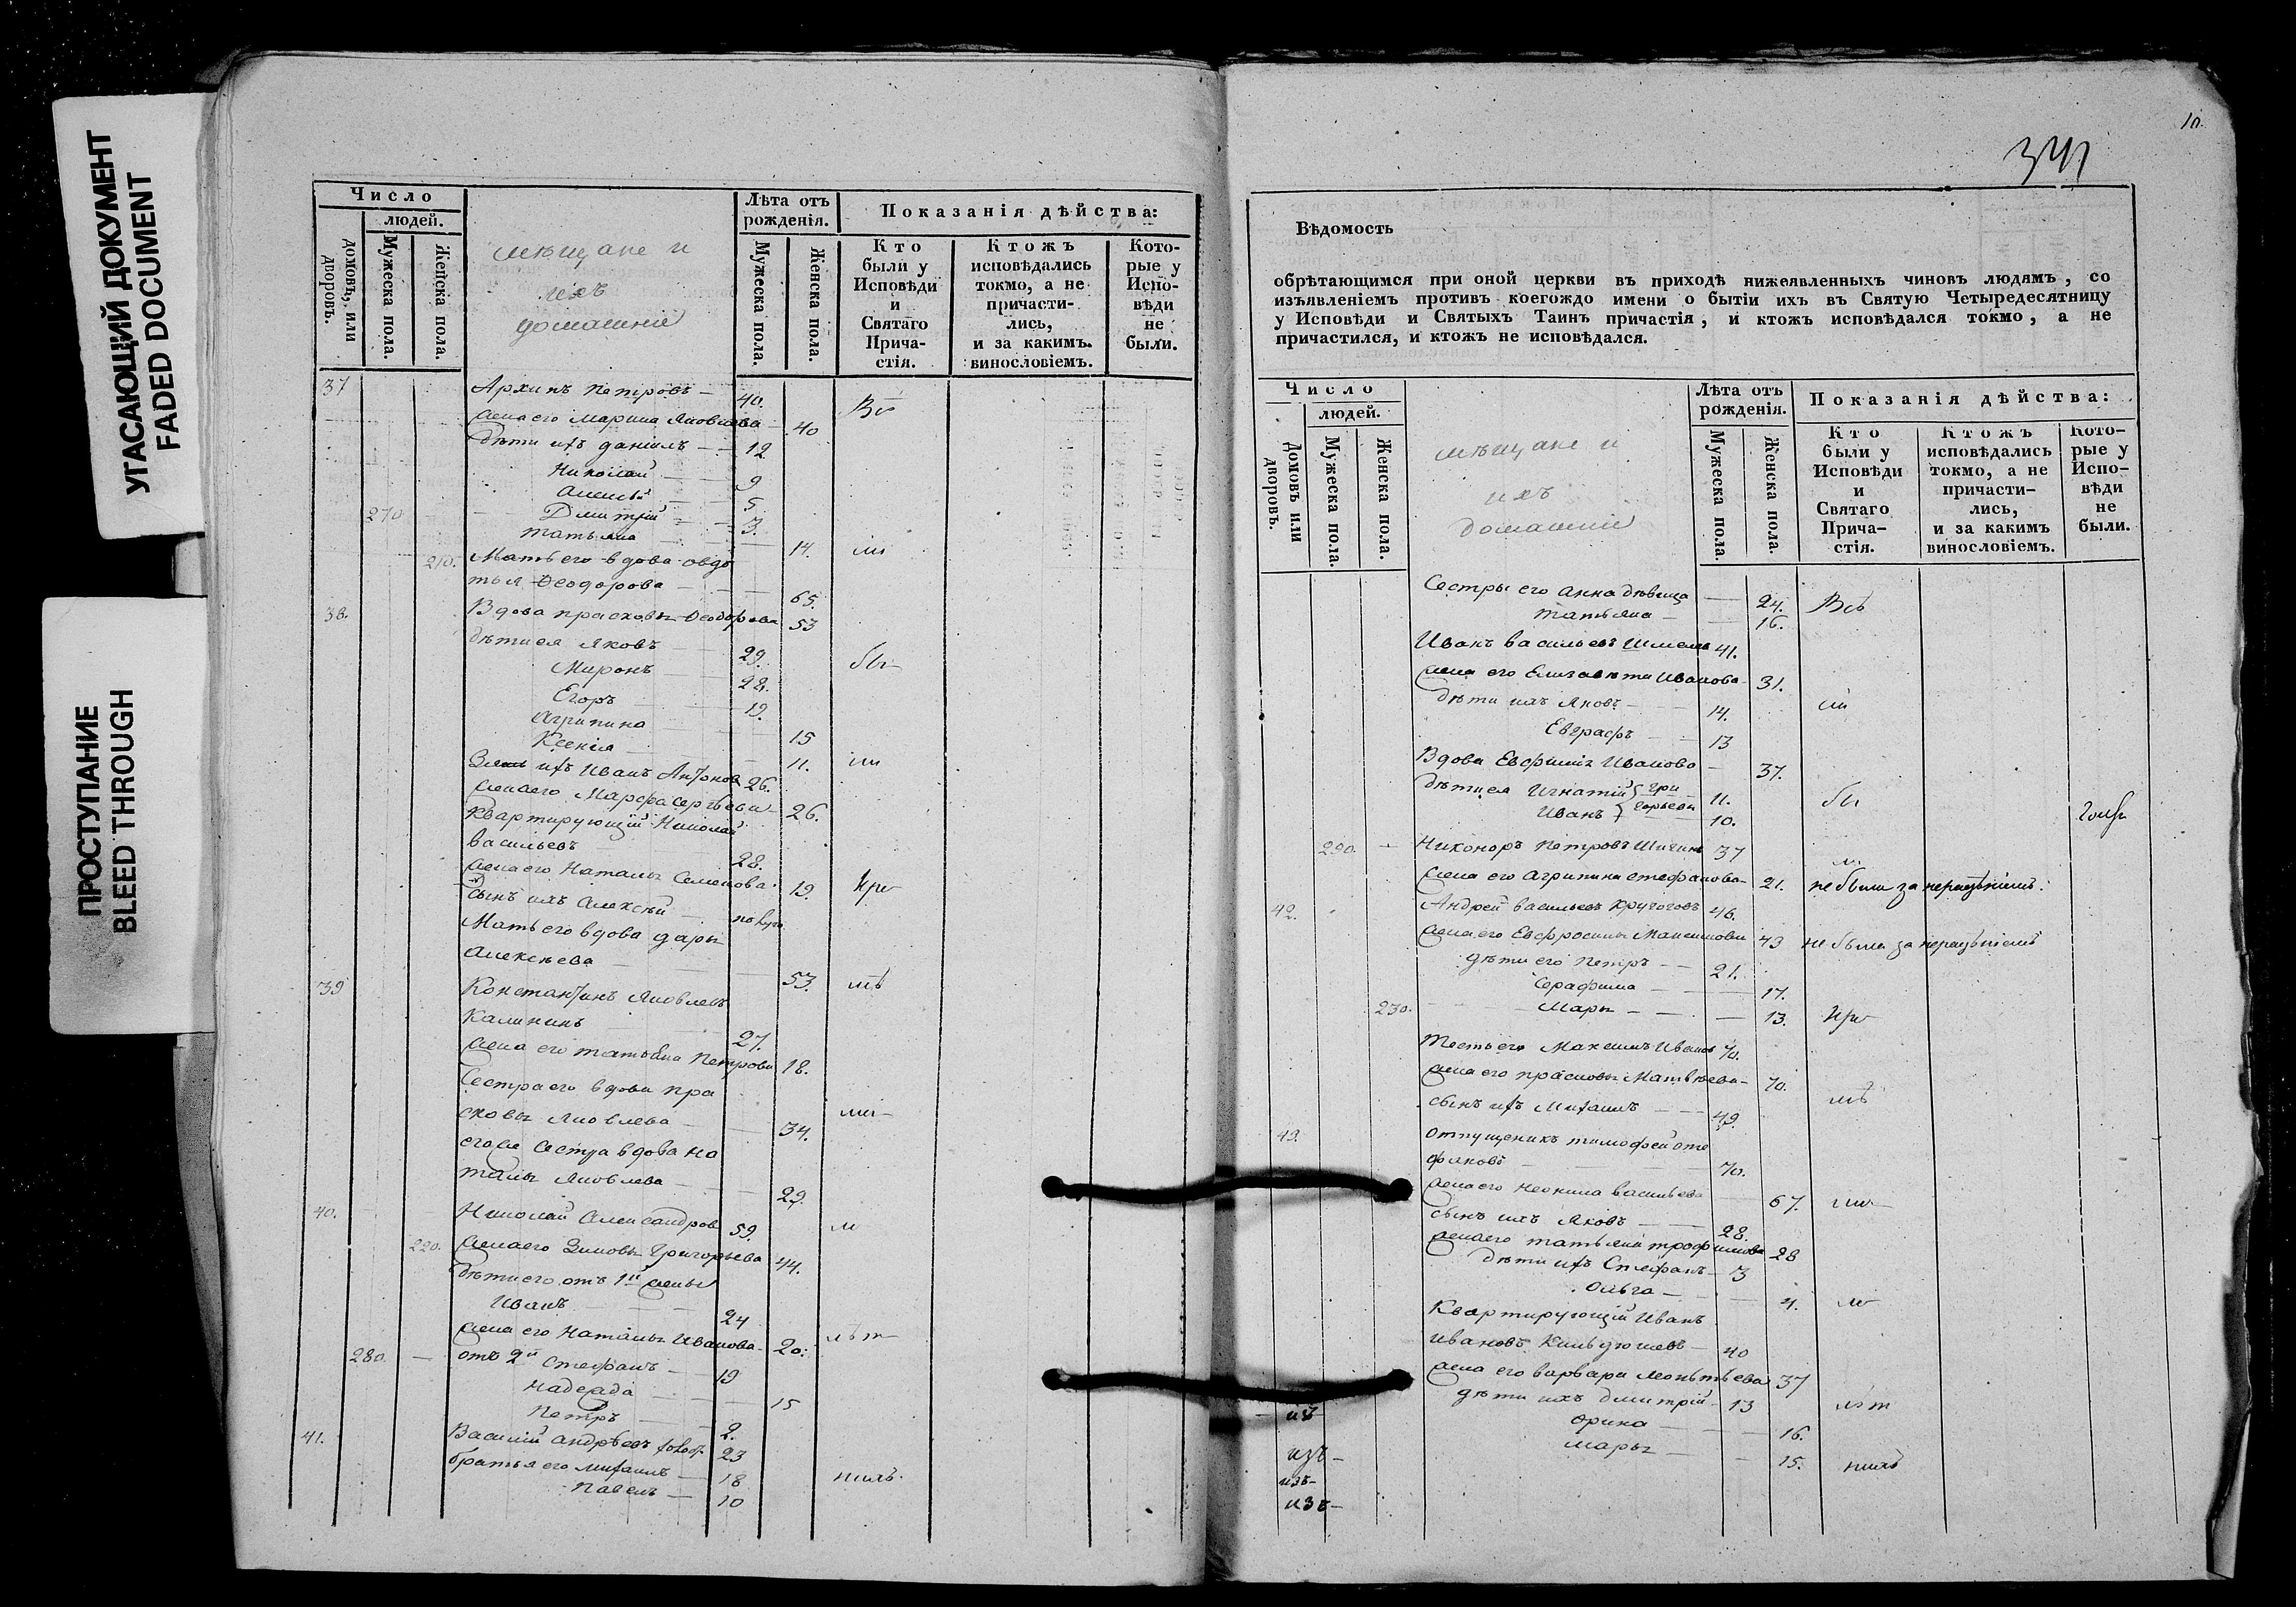 УГАСАЮЩИЙ ДОКУМЕНТ
FADED DOCUMENT
ПРОСТУПАНИЕ
BLEED THROUGH
Число
людей.
домовъ, или дворовъ.
Мужеска пола.
Женска пола.
мѣщане и
ихъ
домашніе
Лѣта отъ рожденія.
Мужеска пола.
Женска пола.
Показанія дѣйства:
Кто были у Исповѣди и Святаго Причастія.
Ктожъ исповѣдались токмо, а не причастились, и за какимъ винословіемъ.
Которые у Исповѣди не были.
37 Архипъ Петровъ — 40.
жена его Марина Яковлева — 40
дѣти ихъ Даніилъ — 12
Николай — 9
Алексѣй 5
270 Дмитрій — 3.
Татьяна 14.
210. Мать его вдова Овдо
тья Ѳеодорова — 65.
38. Вдова Прасковья Ѳеодорова 53
дѣти ея Яковъ 29. бы
Миронъ 22.
Егоръ 19.
Агрипина 15
Ксенія 11.
Зять ихъ Иванъ Антонов 26.
жена его Марфа Сергѣева 26.
Квартирующій Николай
Васильевъ 28.
жена его Наталья Семенова 19. При
сынъ ихъ Алексѣй — полуго
Мать его вдова Дарья
Алексѣева — 53.
39 Константинъ Яковлевъ
Калининъ 27.
жена его Татьяна Петрова 18.
Сестра его вдова Пра
сковья Яковлева — 34.
его же Сестра вдова На
талья Яковлева — 29.
40. Николай Александров 59.
220. жена его Зиновья Григорьева 44.
дѣти его отъ 1й жены
Иванъ 24
жена его Наталья Иванова 20.
280 — отъ 2й Стефанъ — 19
Надежда 15
Петръ 2.
41. Василій Андрѣевъ 23
братья его Михаилъ — 18
Павелъ — 10
10.
341
Вѣдомость
обрѣтающимся при оной церкви въ приходѣ нижеявленныхъ чиновъ людямъ, со
изъявленіемъ противъ коегождо имени о бытіи ихъ въ Святую Четыредесятницу
у Исповѣди и Святыхъ Таинъ причастія, и ктожъ исповѣдался токмо, а не
причастился, и ктожъ не исповѣдался.
Число
людей.
Домовъ или дворовъ.
Мужеска пола.
Женска пола.
мѣщане и
ихъ
домашніе
Лѣта отъ рожденія.
Мужеска пола.
Женска пола.
Показанія дѣйства:
Кто были у Исповѣди и Святаго Причастія.
Ктожъ исповѣдались токмо, а не причастились, и за какимъ винословіемъ.
Которые у Исповѣди не были.
Сестры его Анна дѣвица — 24. Всѣ
Татьяна — 16.
Иванъ Васильевъ 41.
жена его Елизавета Иванова 31.
дѣти ихъ Яковъ — 14.
Евграфъ — 13
Вдова Евфимія Иванова — 37.
дѣти ея Игнатій Гри 11. бы
Иванъ горьевы 10.
290. — Никоноръ Петровъ 37
жена его Агрипина Стефанова — 21. не были за нерадѣніемъ.
42. Андрей Васильевъ Кругоговъ 46.
жена его Евфросинья Максимова 43 не были за нерадѣніемъ
дѣти его Петръ — 21.
Серафима — 17.
230. Марья — 13. При
Тесть его Максимъ Иванов 70.
жена его Прасковья Матвѣева — 70.
сынъ ихъ Михаилъ — 49.
43. отпущеникъ Тимофей Сте
фановъ 70.
жена его Неонила Васильева 67.
сынъ ихъ Яковъ — 28.
жена его Татьяна Трофимова 28
дѣти ихъ Стефанъ — 3
Ольга — 4.
Квартирующій Иванъ
Ивановъ Кильдюшевъ — 40
жена его Варвара 37
дѣти ихъ Дмитрій — 13
Орина — 16.
Марья — 15.
изъ —
изъ —
изъ —